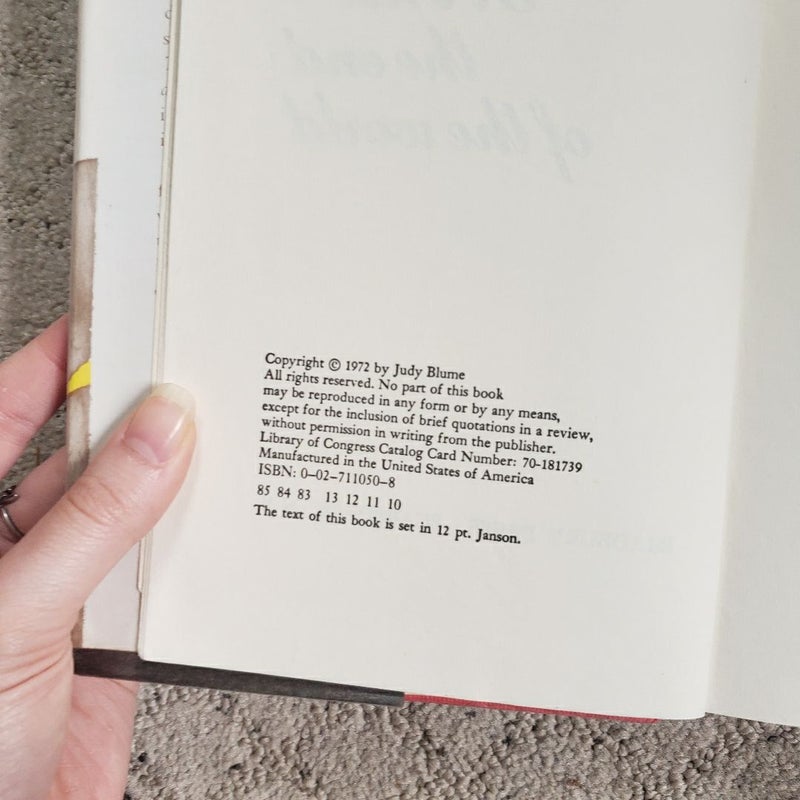 Copyright © 1972 by Judy Blume
All rights reserved. No part of this book
may be reproduced in any form or by any means,
except for the inclusion of brief quotations in a review,
without permission in writing from the publisher.
Library of Congress Catalog Card Number: 70-181739
Manufactured in the United States of America
ISBN: 0–02–711050–8
85 84 83 13 12 11 10
The text of this book is set in 12 pt. Janson.